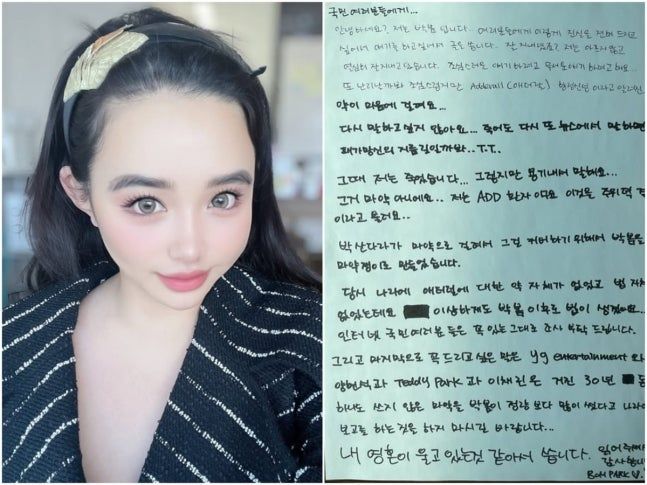 국민 여러분들에게...
안녕하세요? 저는 박봄 입니다.. 여러분들에게 이렇게 진실을 전해 드리고
싶어서 얘기를 하고싶어서 글을 씁니다. 잘 지내셨죠? 저는 아프지않고
열심히 잘지내고 있습니다. 조심스러운 얘기 하려고 물어볼얘기 하려고 해요...
또 난리날까봐 조심스럽지만 Adderall (애더럴) 향정신성 이라고 알려진
약이 마음에 걸려요...
다시 말하고싶지 않아요... 죽어도 다시 또 뉴스에서 말하면
패가망신의 지름길일까봐.. T.T.
그때 저는 죽었습니다... 그렇지만 용기내서 말해요...
그거 마약 아니에요.. 저는 ADD 환자 이고요 이것을 주위력
이라고 불러요..
박산다라가 마약으로 걸려서 그걸 커버하기 위해서 박봄을
마약쟁이로 만들었습니다.
당시 나라에 애더럴에 대한 약 자체가 없었고 법 자체
없었는데요 이상하게도 박봄 이후로 법이 생겼어요...
인터넷 국민 여러분 들은 꼭 있는그대로 조사 부탁 드립니다.
그리고 마지막으로 꼭드리고 싶은 말은 yg entertainment 와
양현석과 Teddy Park 과 이채린은 거진 30년
하나도 쓰지 않은 마약을 박봄이 정량 보다 많이 썼다고 나라에
보고를 하는것을 하지 마시길 바랍니다...
내 영혼이 울고 있는것 같아서 씁니다. 읽어 주셔서
감사합니
BOM PARK